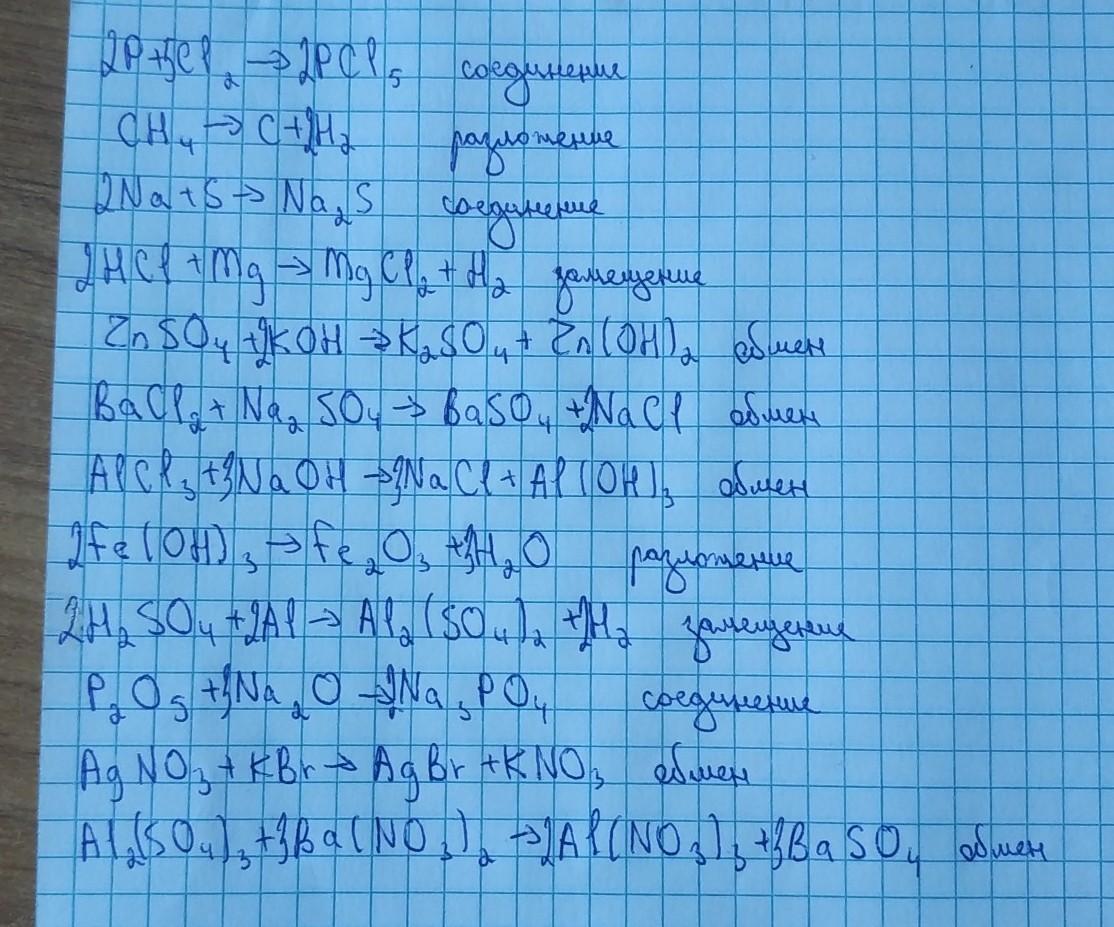 2P+5Cl₂→2PCl₅ соединение
CH₄→C+2H₂ разложение
2Na+S→Na₂S соединение
2HCl+Mg→MgCl₂+H₂ замещение
ZnSO₄+2KOH→K₂SO₄+Zn(OH)₂ обмен
BaCl₂+Na₂SO₄→BaSO₄+2NaCl обмен
AlCl₃+3NaOH→3NaCl+Al(OH)₃ обмен
2Fe(OH)₃→Fe₂O₃+3H₂O разложение
2H₂SO₄+2Al→Al₂(SO₄)₂+2H₂ замещение
P₂O₅+3Na₂O→2Na₃PO₄ соединение
AgNO₃+KBr→AgBr+KNO₃ обмен
Al₂(SO₄)₃+3Ba(NO₃)₂→2Al(NO₃)₃+3BaSO₄ обмен